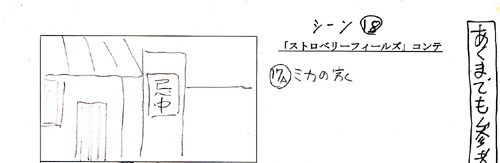 シーン ⑱
「ストロベリーフィールズ」コンテ
忌中
ミカの家
あくまでも参考